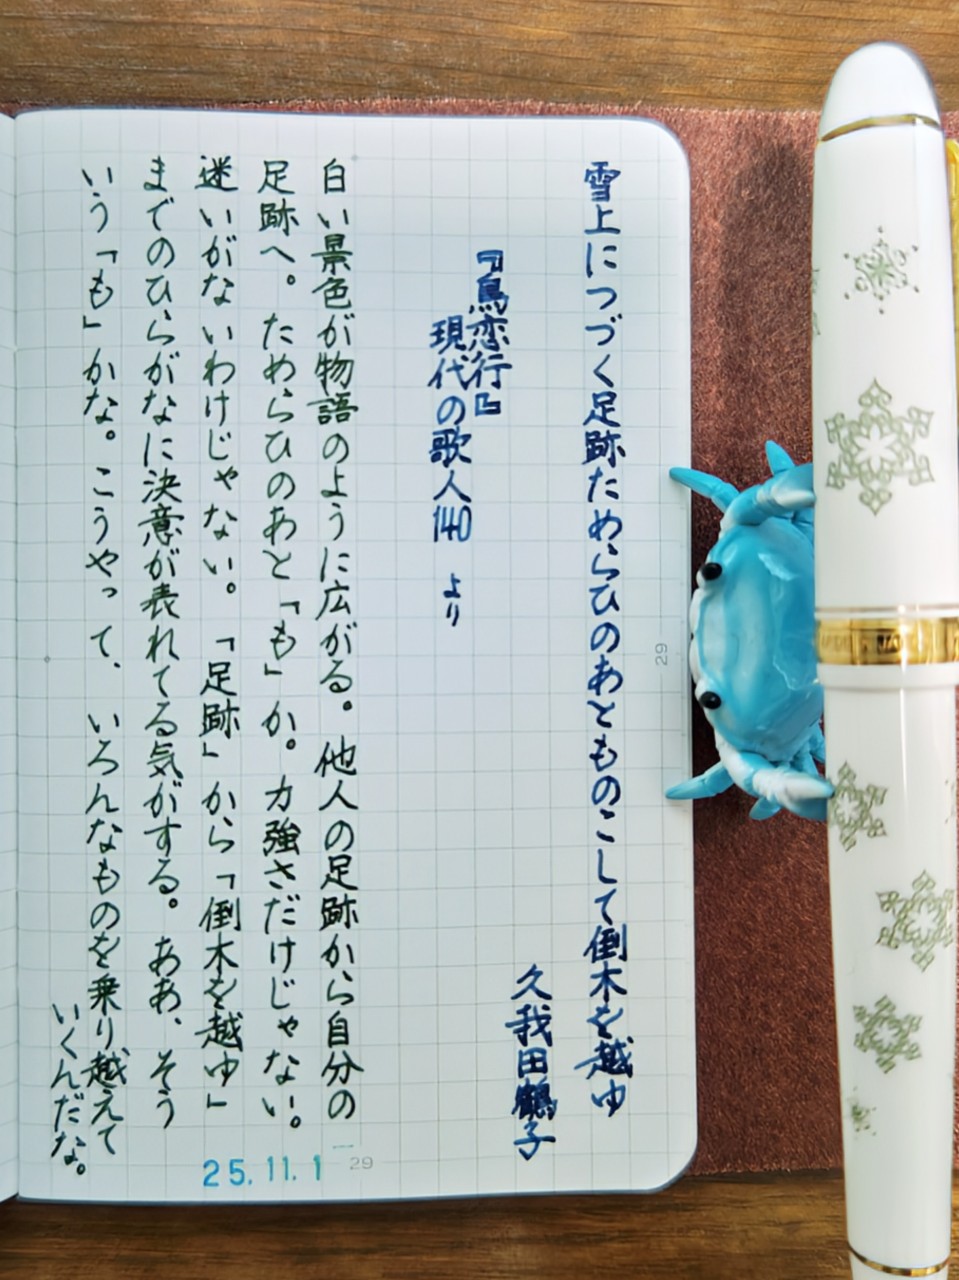 雪上につづく足跡ためらひのあとものこして倒木を越ゆ
久我田鶴子
『鳥恋行』
現代の歌人140 より
白い景色が物語のように広がる。他人の足跡から自分の
足跡へ。ためらひのあと「も」か。力強さだけじゃない。
迷いがないわけじゃない。「足跡」から「倒木を越ゆ」
までのひらがなに決意が表れてる気がする。ああ、そう
いう「も」かな。こうやって、いろんなものを乗り越えて
いくんだな。
25.11.1
29
29